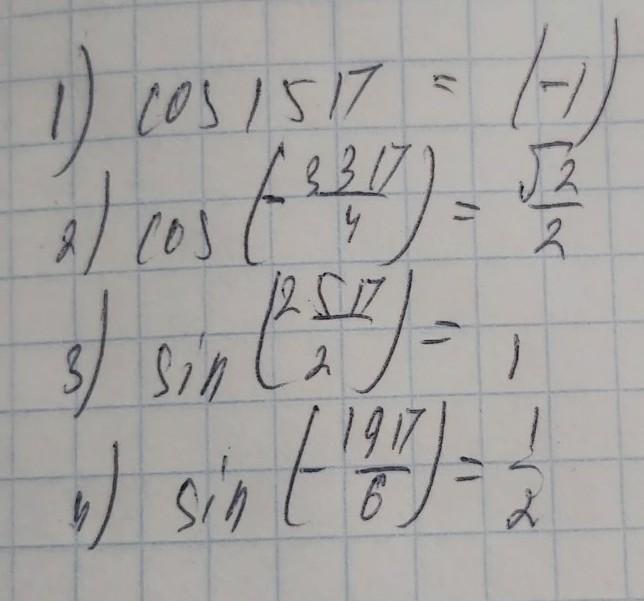 1) cos 15π = (-1)
2) cos (-33π/4) = √2/2
3) sin (25π/2) = 1
4) sin (-19π/6) = 1/2